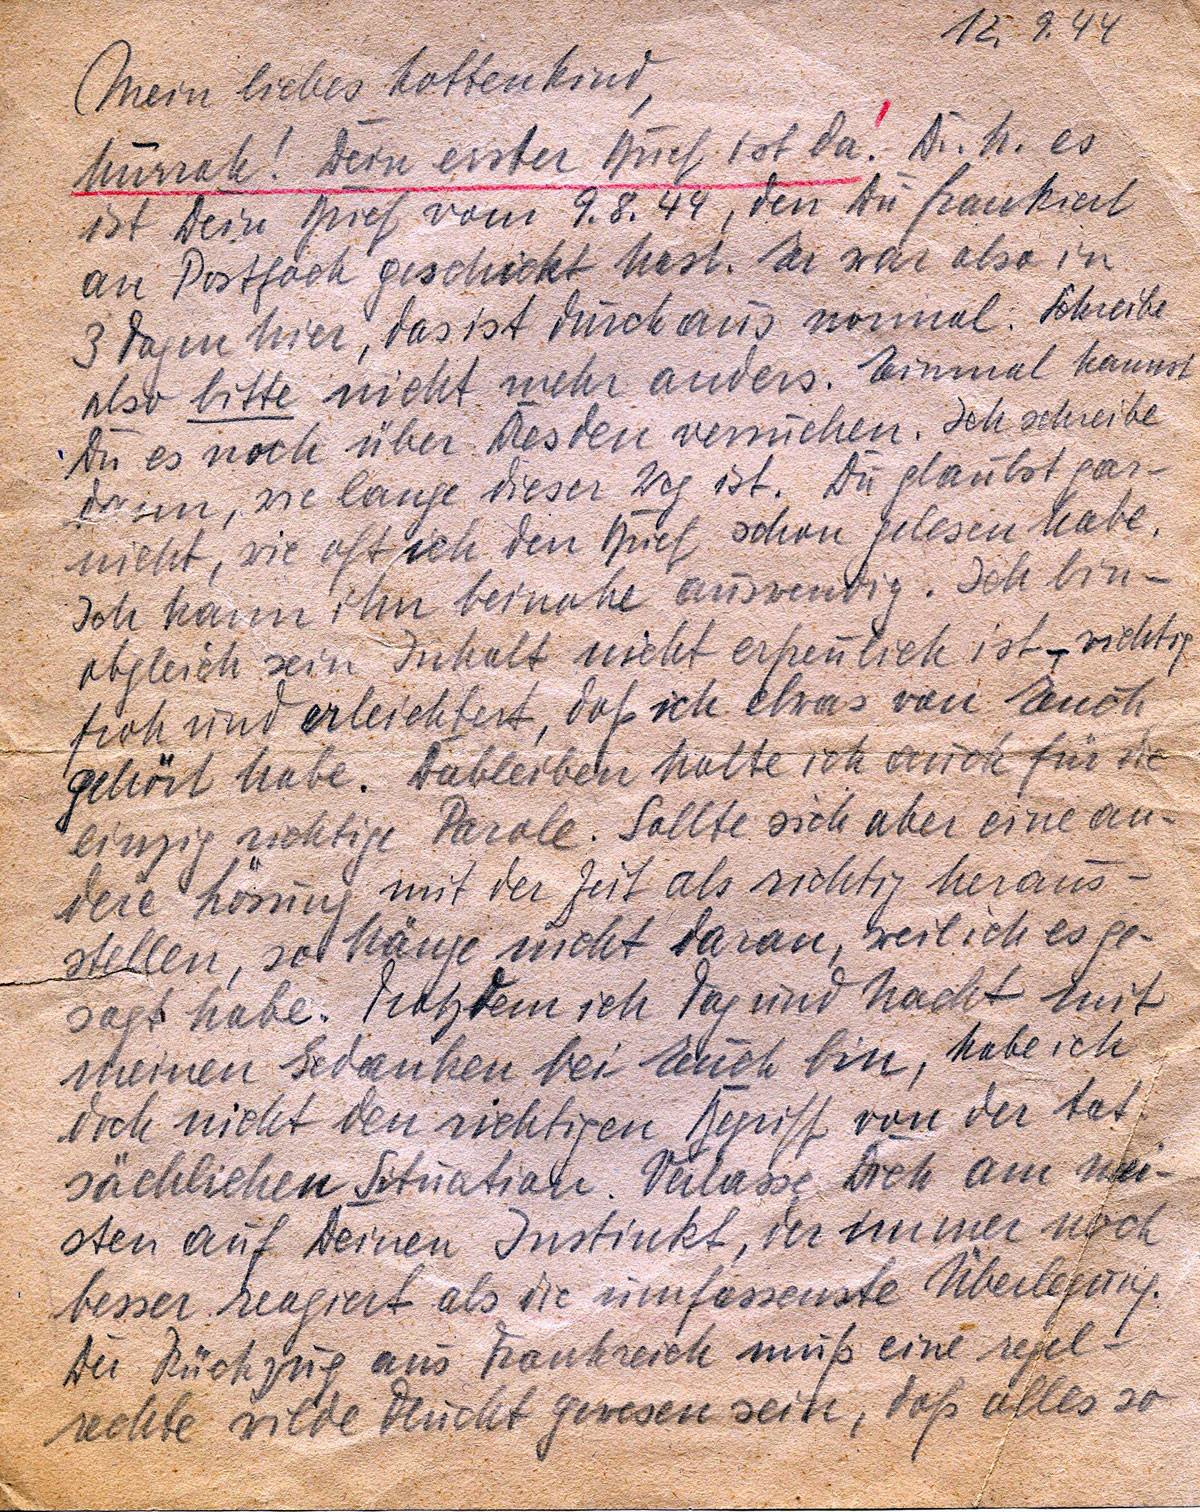 12. 9. 44
Mein liebes Lottenkind,
hurrah! Dein erster Brief ist da! D. h. es
ist Dein Brief vom 9. 8. 44, den Du frankiert
an Postfach geschickt hast. Er war also in
3 Tagen hier, das ist durchaus normal. Schreibe
also bitte nicht mehr anders. Einmal kannst
Du es noch über Dresden versuchen. Ich schreibe
dann, wie lange dieser Weg ist. Du glaubst gar-
nicht, wie oft ich den Brief schon gelesen habe.
Ich kann ihn beinahe auswendig. Ich bin -
obgleich sein Inhalt nicht erfreulich ist - richtig
froh und erleichtert, daß ich etwas von Euch
gehört habe. Dableiben halte ich auch für die
einzig richtige Parole. Sollte sich aber eine an-
dere Lösung mit der Zeit als richtig heraus-
stellen, so hänge nicht daran, weil ich es ge-
sagt habe. Trotzdem ich Tag und Nacht mit
meinen Gedanken bei Euch bin, habe ich
doch nicht den richtigen Begriff von der tat-
sächlichen Situation. Verlasse Dich am mei-
sten auf Deinen Instinkt, der immer noch
besser reagiert als die umfassenste Überlegung.
Der Rückzug aus Frankreich muß eine regel-
rechte wilde Flucht gewesen sein, daß alles so